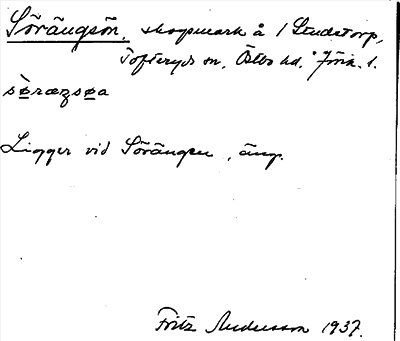 Sörängsön, skogsmark å 1 Lindetorp,
Tofteryds sn, Östbo hd. Jönk. l.
sö̀ræŋsøa
Ligger vid Sörängen, äng.
Fritz Andersson 1937.